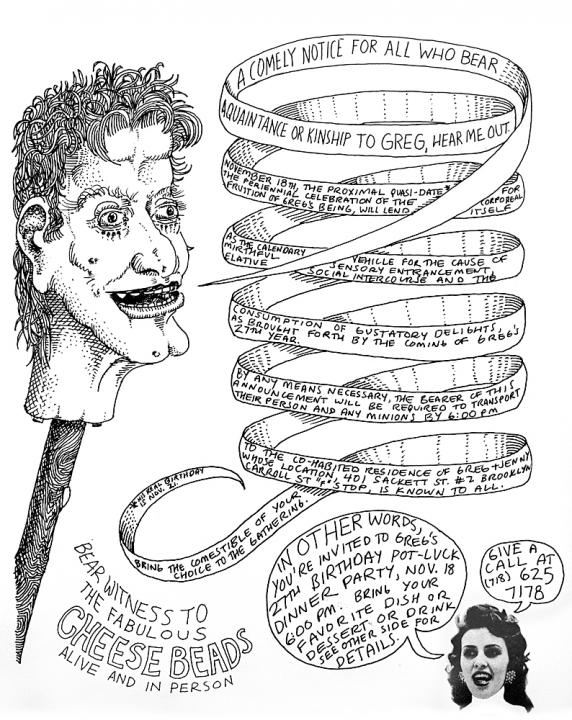 A COMELY NOTICE FOR ALL WHO BEAR
AQUAINTANCE OR KINSHIP TO GREG, HEAR ME OUT.
NOVEMBER 18TH, THE PROXIMAL QUASI-DATE* FOR
THE PERIENNIAL CELEBRATION OF THE CORPOREAL
FRUITION OF GREG'S BEING, WILL LEND ITSELF
AS THE CALENDARY VEHICLE FOR THE CAUSE OF
MIRTHFUL SENSORY ENTRANCEMENT,
ELATIVE SOCIAL INTERCOURSE AND THE
CONSUMPTION OF GUSTATORY DELIGHTS,
AS BROUGHT FORTH BY THE COMING OF GREG'S
27TH YEAR.
BY ANY MEANS NECESSARY, THE BEARER OF THIS
ANNOUNCEMENT WILL BE REQUIRED TO TRANSPORT
THEIR PERSON AND ANY MINIONS BY 6:00 PM
TO THE CO-HABITED RESIDENCE OF GREG + JENNY
WHOSE LOCATION, 401 SACKETT ST. #2 BROOKLYN
CARROLL ST "F" STOP, IS KNOWN TO ALL.
BRING THE COMESTIBLE OF YOUR
CHOICE TO THE GATHERING.
BIRTHDAY
IS NOV. 21.
BEAR WITNESS TO
THE FABULOUS
CHEESE BEADS
ALIVE AND IN PERSON
IN OTHER WORDS,
YOU'RE INVITED TO GREG'S
27TH BIRTHDAY POT-LUCK
DINNER PARTY, NOV. 18
6:00 PM. BRING YOUR
FAVORITE DISH OR
DESSERT OR DRINK.
SEE OTHER SIDE FOR
DETAILS.
GIVE A
CALL AT
(718) 625
7178